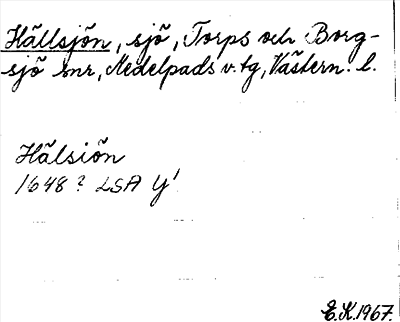 Hällsjön, sjö, Torps och Borg-
sjö snr, Medelpads v. tg, Västern. l.
Hälsiön
1648? LSA Y'
E.K.1967.